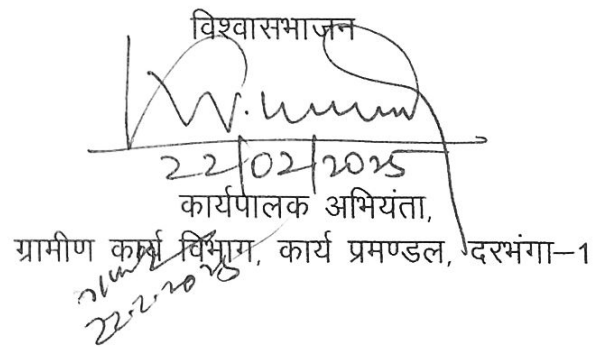 विश्वासभाजन
22/02/2025
कार्यपालक अभियंता,
ग्रामीण कार्य विभाग, कार्य प्रमण्डल, दरभंगा-1
22.2.2025